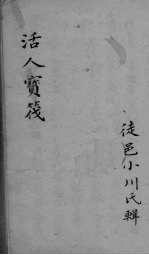 活人寳筏
徒邑小川氏輯